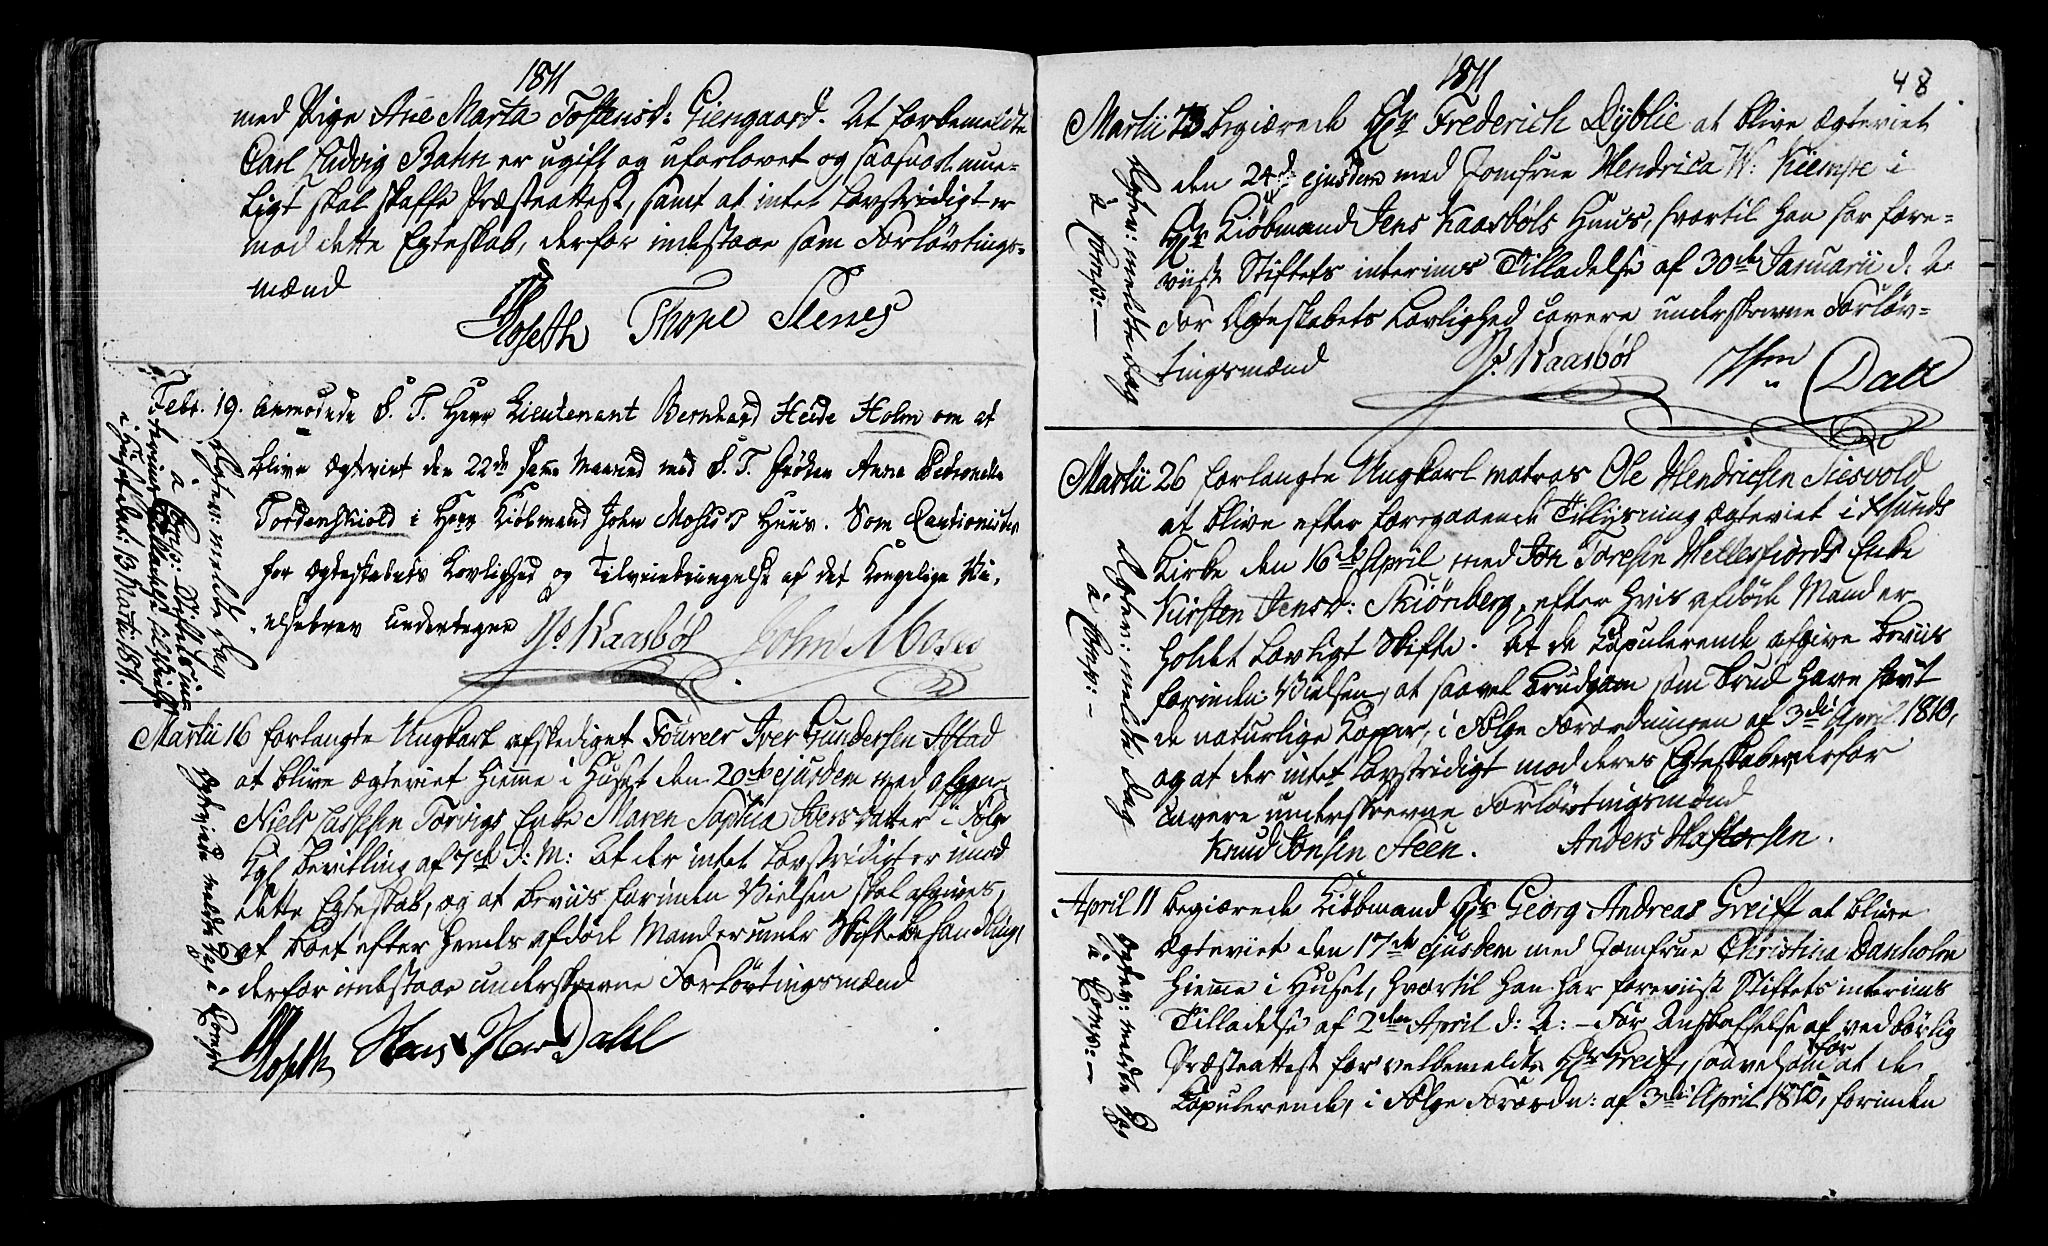 1811
med Pige Ane Marta Tostensd: Giengaard. At forbemeldte
Carl Ludvig Bahn er ugift og uforlovet og saasnart mue-
ligt skal skaffe Præsteattest, samt at intet Lovstridigt er
mod dette Egteskab, derfor indestaae som Forlovtings-
mænd
Roseth Thope Stenes
Febr. 19. anmodede S. T. Herr Lieutenant Bernhard Heide Holm om at
blive Egteviet den 22de samme Maaned med S. T. Frøken Anne Petronelle
Tordenskiold i Herr Kiøbmand John Moses's Huus. Som Cautionister
for Egteskabets Lovlighed og Tilveiebringelse af det Kongelige Vi-
elsebrev undertegne
Js. Kaasbøl John Moses
Egtev: meldte Dag
à Cons:
Stiftets inte-
rims Tilladelse til
i Huset dat: 13 Martii 1811.
Martii 16 forlangte Ungkarl afskediget Foureer Iver Gundersen Astad
at blive Egteviet hieme i Huset den 20de ejusdem med afgangne
Niels Larssen Torvigs Enke Maren Sophia Iversdatter i Følge
Kgl Bevilling af 7de d: M: At der intet Lovstridigt er imod
dette Egteskab, og at Beviis forinden Vielsen skal afgives,
at Boet efter hendes afdøde Mand er under Skiftebehandling,
derfor indestaae underskrevne Forlovtingsmænd
Roseth Hans Iver Dahl
Egteviede meldte Dag à Cons:
1811
48
Martii 23 begiærede Hr Frederich Dyblie at blive Egteviet
den 24de ejusdem med Jomfrue Hendrica W: Kiempe i
Hr Kiøbmand Jens Kaasbøls Huus, hvortil han har fore-
viist Stiftets interims Tilladelse af 30te Januarii d: A:
For Egteskabets Lovlighed cavere underskrevne Forlov-
tingsmænd
Js. Kaasbøl Dall
Egtev: meldte Dag
à Cons: —
Martii 26 forlangte Ungkarl matros Ole Hendrichsen Nesvold
at blive efter foregaaende Tillysning Egteviet i Xsunds
Kirke den 16de April med Jon Toresen Mellesfiords Enke
Kirsten Jensd: Skiønberg, efter hvis afdøde Mand er
holdet Lovligt Skifte. At de Copulerende afgive Beviis
forinden Vielsen, at saavel Brudgom som Brud have havt
de naturlige Kopper, i Følge Forordningen af 3die April 1810,
og at der intet Lovstridigt mod deres Egteskab er, derfor
cavere underskrevne Forlovtingsmænd
Knud Jonsen Steen. Anders Hastorsen.
Egtev: meldte Dag
à Cons: —
April 11 begiærede Kiøbmand Hr Georg Andreas Greiff at blive
Egteviet den 17de ejusdem med Jomfrue Christina Danholm
hieme i Huset, hvortil han har foreviist Stiftets interims
Tilladelse af 2den April d: A: — For Anskaffelse af vedbørlig
Præsteattest for velbemeldte Hr Greiff, saavelsom for at de
Copulerende, i Følge Forordn: af 3die April 1810, forinden
Egtev: meldte Dag
à Cons: —